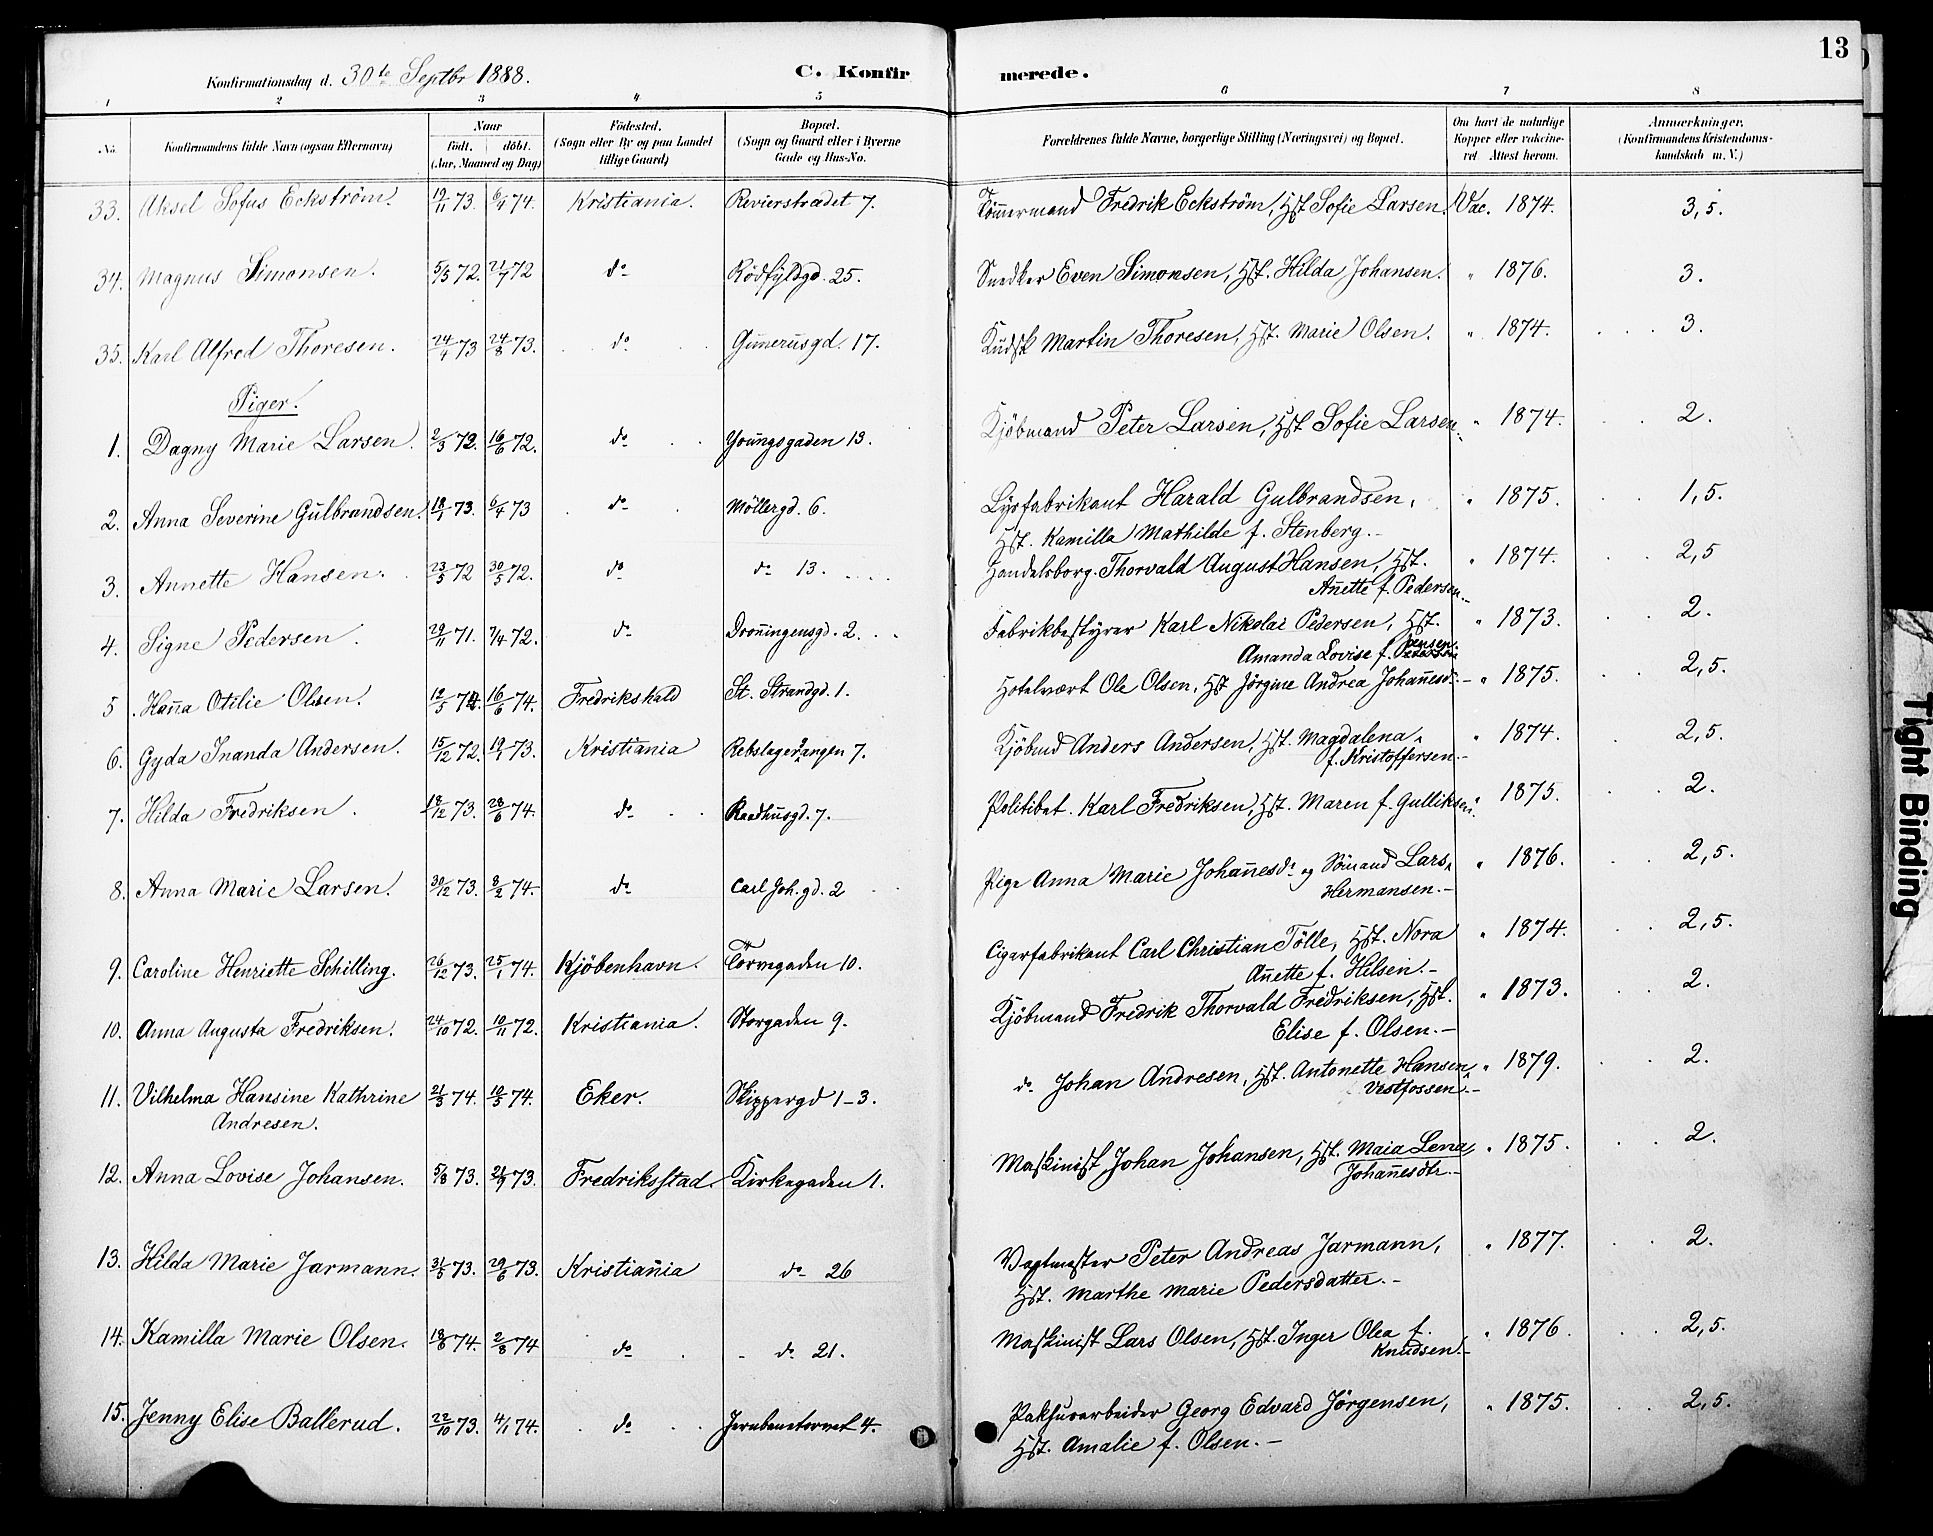 13
Konfirmationsdag d. 30te Septbr 1888.
C. Konfirmerede.
1 2 3 4 5 6 7 8
No. Konfirmandens fulde Navn (ogsaa Efternavn) Naar født. døbt. (Aar, Maaned og Dag) Fødested. (Sogn eller By og paa Landet tillige Gaard) Bopæl. (Sogn og Gaard eller i Byerne Gade og Hus-No. Forældrenes fulde Navne, borgerlige Stilling (Næringsvei) og Bopæl. Om havt de naturlige Kopper eller vakcineret Attest herom. Anmærkninger, (Konfirmandens Kristendomskundskab m. V.)
33. Aksel Sofus Eckström. 19/11 73. 6/4 74. Kristiania. Revierstrædet 7. Tömmermand Fredrik Eckström, Hst. Sofie Larsen. Vac. 1874. 3,5.
34. Magnus Simonsen. 5/3 72. 21/7 72 do Rödfyldgd. 25. Snedker Even Simonsen, Hst. Hilda Johansen. " 1876. 3.
35. Karl Alfred Thoresen. 24/4 73 24/8 73. do Gunerusgd. 17. Kudsk Martin Thoresen, Hst. Marie Olsen. " 1874. 3.
Piger.
1. Dagny Marie Larsen. 2/3 72. 16/6 72. do Youngsgaden 13. Kjöbmand Peter Larsen, Hst Sofie Larsen. " 1874. 2.
2. Anna Severine Gulbrandsen. 18/1 73. 6/4 73 do Möllergd. 6. Lysfabrikant Harald Gulbrandsen, " 1875. 1,5.
Hst. Kamilla Mathilde f. Stenberg.
3. Annette Hansen. 23/5 72 30/5 72. do do 13. Handelsborg. Thorvald August Hansen, Hst. " 1874. 2,5
Anette f. Pedersen.
4. Signe Pedersen. 29/11 71. 7/4 72. do Dronningensgd. 2. Fabrikbestyrer Karl Nikolai Pedersen, Hst. " 1873. 2.
Amanda Lovise f.
5 Hana Otilie Olsen. 12/5 74. 16/6 74. Fredrikshald St. Strandgd. 1. Hotelvært Ole Olsen, Hst Jörgine Andrea Johanesd. " 1875. 2,5.
6. Gyda Inanda Andersen. 15/12 72. 19/1 73. Kristiania Rebslagergangen 7. Kjöbmd Anders Andersen, Hst. Magdalena " 1874. 2,5.
f. Kristoffersen.
7. Hilda Fredriksen. 18/12 73. 28/6 74. do Raadhusgd. 7. Politibet. Karl Fredriksen, Hst. Maren f. Gulliksen. 1875. 2.
8. Anna Marie Larsen. 30/12 73. 8/2 74. do Carl Joh. gd. 2 Pige Anna Marie Johanesdr og Sömand Lars " 1876. 2,5.
Hermansen.
9. Caroline Henriette Schilling. 26/12 73. 25/1 74. Kjöbenhavn. Torvegaden 10. Cigarfabrikant Carl Christian Tölle, Hst. Nora " 1874. 2,5.
Anette f. Hilsen.
10. Anna Augusta Fredriksen. 24/10 72. 10/11 72. Kristiania. Storgaden 9. Kjöbmand Fredrik Thorvald Fredriksen, Hst. " 1873. 2.
Elise f. Olsen.
11. Vilhelma Hansine Kathrine 21/3 74. 10/5 74. Eker. Skippergd 1-3. do Johan Andresen, Hst. Antonette Hansen " 1879. 2.
Andresen. Vestfossen.
12. Anna Lovise Johansen. 5/8 73. 21/9 73. Fredriksstad. Kirkegaden 1. Maskinist Johan Johansen, Hst. Maia Lena " 1875. 2.
Johanesdtr.
13. Hilda Marie Jarmann. 31/5 73. 29/6 73. Kristiania do 26 Vagtmester Peter Andreas Jarmann, " 1877. 2.
Hst. Marthe Marie Pedersdatter.
14. Kamilla Marie Olsen. 18/6 74. 2/8 74 do do 21. Maskinist Lars Olsen, Hst. Inger Olea f. " 1876. 2,5.
Knudsen.
15. Jenny Elise Ballerud. 22/10 73. 4/1 74. do Jernbanetorvet 4. Pakhusarbeider Georg Edvard Jörgensen, " 1875. 2,5.
Hst. Amalie f. Olsen.
Tight Binding